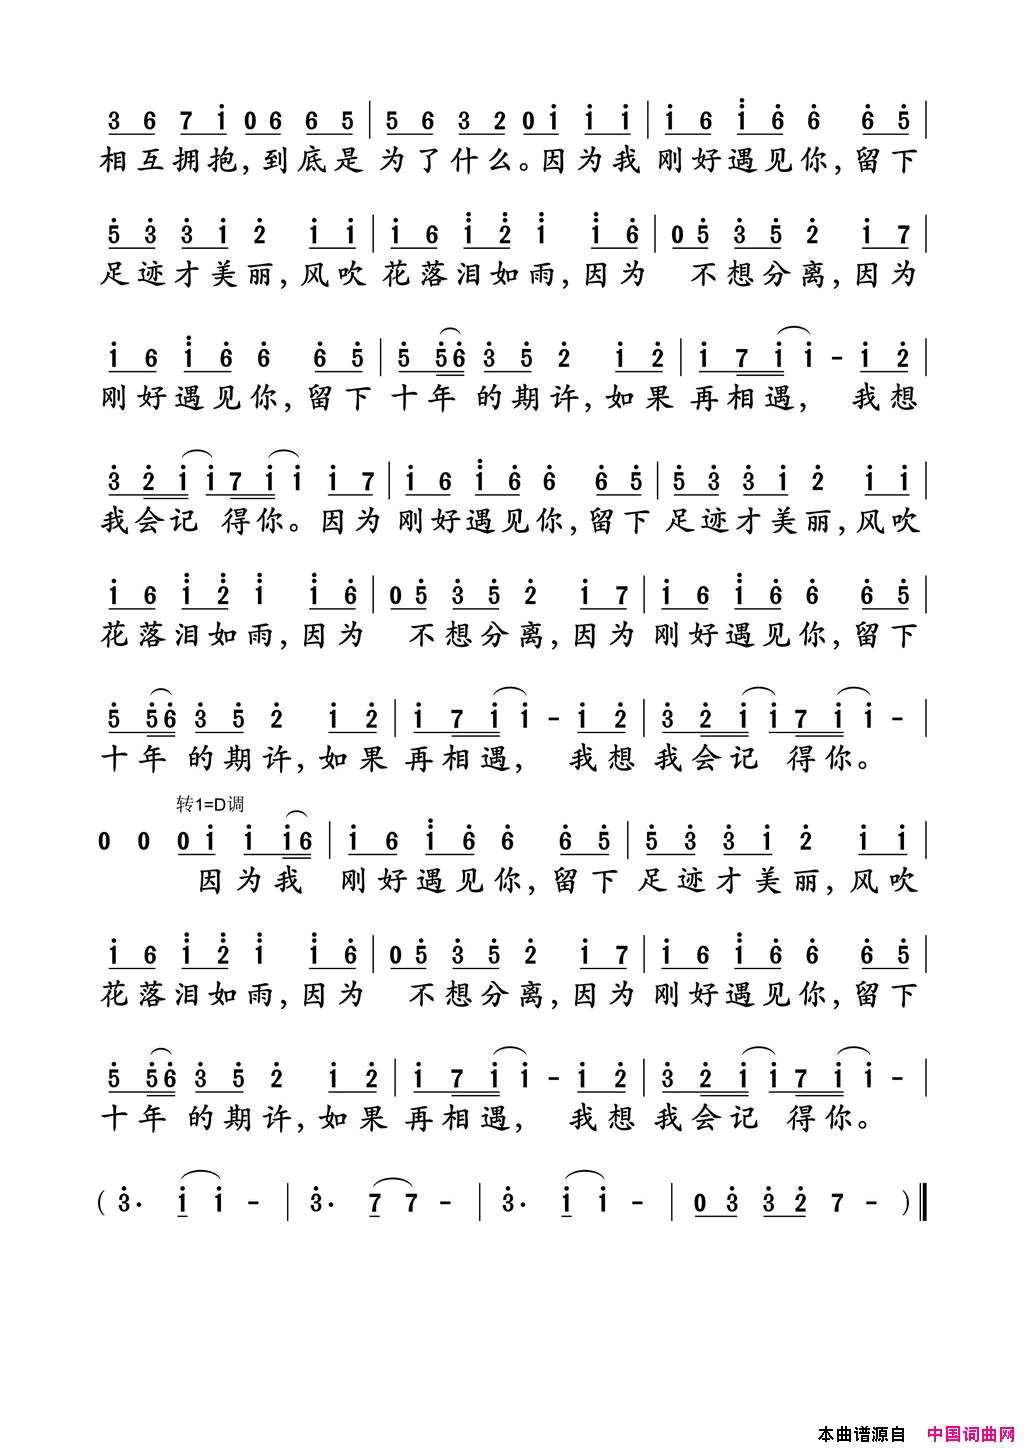 3 6 7 i 0 6 6 5 | 5 6 3 2 0 i i i | i 6 i 6 6 6 5 |
相互拥抱,到底是 为了什么。因为我 刚好遇见你,留下
5 3 3 i 2 i i | i 6 i 2 i i 6 | 0 5 3 5 2 i 7 |
足迹才美丽,风吹 花落泪如雨,因为 不想分离,因为
i 6 i 6 6 6 5 | 5 5 6 3 5 2 i 2 | i 7 i i - i 2 |
刚好遇见你,留下 十年 的期许,如果 再相遇, 我想
3 2 i i 7 i i i 7 | i 6 i 6 6 6 5 | 5 3 3 i 2 i i |
我会记 得你。因为 刚好遇见你,留下 足迹才美丽,风吹
i 6 i 2 i i 6 | 0 5 3 5 2 i 7 | i 6 i 6 6 6 5 |
花落泪如雨,因为 不想分离,因为 刚好遇见你,留下
5 5 6 3 5 2 i 2 | i 7 i i - i 2 | 3 2 i i 7 i i - |
十年 的期许,如果 再相遇, 我想 我会记 得你。
转1=D调
0 0 0 i i i 6 | i 6 i 6 6 6 5 | 5 3 3 i 2 i i |
因为我 刚好遇见你,留下 足迹才美丽,风吹
i 6 i 2 i i 6 | 0 5 3 5 2 i 7 | i 6 i 6 6 6 5 |
花落泪如雨,因为 不想分离,因为 刚好遇见你,留下
5 5 6 3 5 2 i 2 | i 7 i i - i 2 | 3 2 i i 7 i i - |
十年 的期许,如果 再相遇, 我想 我会记 得你。
( 3· i i - | 3· 7 7 - | 3· i i - | 0 3 3 2 7 - )
本曲谱源自 中国词曲网